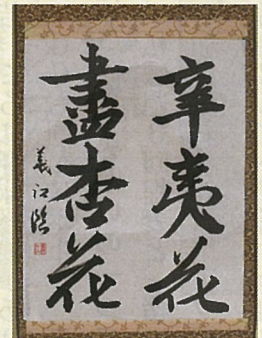 辛夷花
盡杏花
義江臨